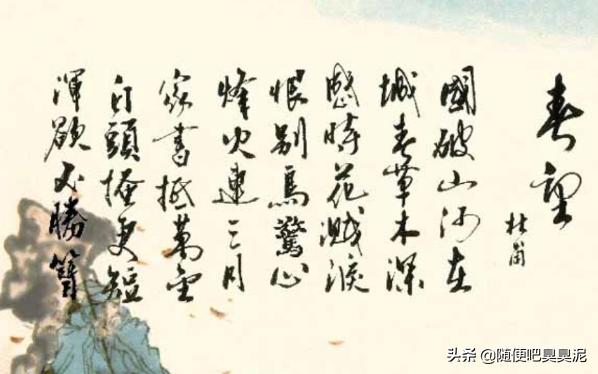 春望
杜甫
國破山河在
城春草木深
感時花濺淚
恨别鳥驚心
烽火連三月
家書抵萬金
白頭搔更短
渾欲不勝簪
头条 @随便吧臭臭泥